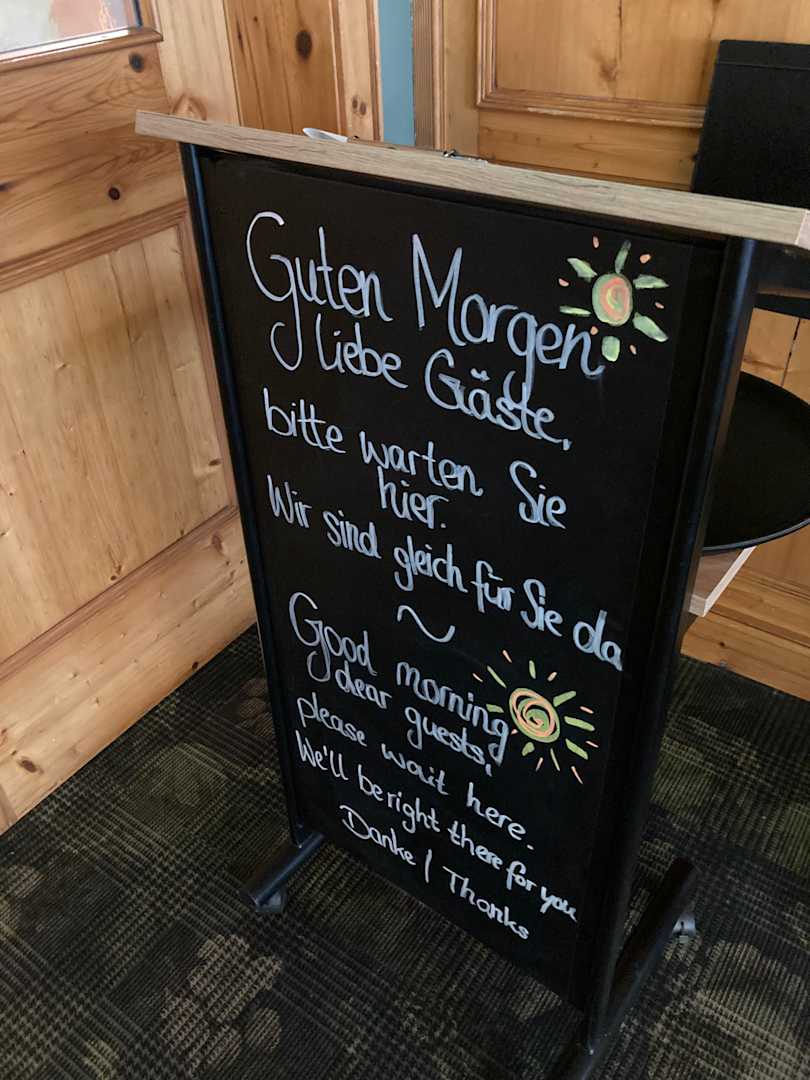 Guten Morgen
liebe Gäste,
bitte warten Sie
hier.
Wir sind gleich für Sie da
~
Good morning
dear guests,
please wait here.
We'll be right there for you
Danke / Thanks